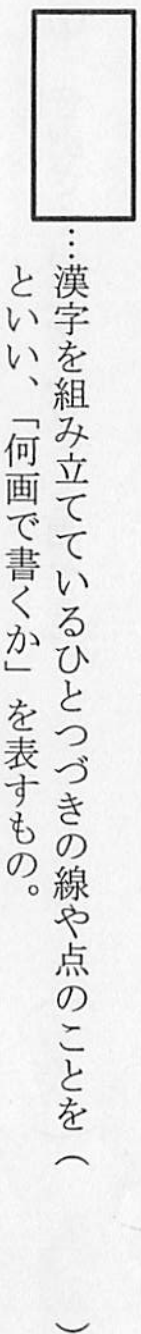 …漢字を組み立てているひとつづきの線や点のことを（　　　）
といい、「何画で書くか」を表すもの。